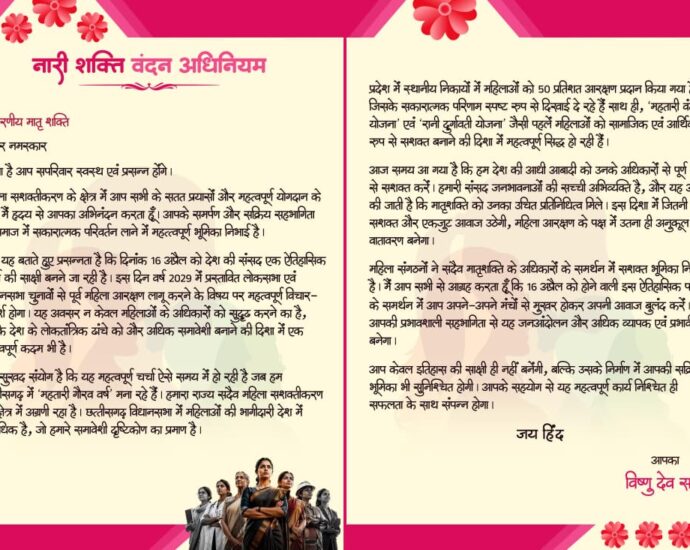 नारी शक्ति वंदन अधिनियम
मातृ शक्ति
नमस्कार
है आप सपरिवार स्वस्थ एवं प्रसन्न होंगे।
सशक्तीकरण के क्षेत्र में आप सभी के सतत प्रयासों और महत्वपूर्ण योगदान के
मैं हृदय से आपका अभिनंदन करता हूँ। आपके समर्पण और सक्रिय सहभागिता
में सकारात्मक परिवर्तन लाने में महत्त्वपूर्ण भूमिका निभाई है।
यह बताते हुए प्रसन्नता है कि दिनांक 16 अप्रैल को देश की संसद एक ऐतिहासिक
की साक्षी बनने जा रही है। इस दिन वर्ष 2029 में प्रस्तावित लोकसभा एवं
चुनावों से पूर्व महिला आरक्षण लागू करने के विषय पर महत्वपूर्ण विचार-
होगा। यह अवसर न केवल महिलाओं के अधिकारों को सुदृढ़ करने का है,
देश के लोकतांत्रिक ढांचे को और अधिक समावेशी बनाने की दिशा में एक
कदम भी है।
सुखद संयोग है कि यह महत्वपूर्ण चर्चा ऐसे समय में हो रही है जब हम
में 'महतारी गौरव वर्ष' मना रहे हैं। हमारा राज्य सदैव महिला सशक्तीकरण
में अग्रणी रहा है। छत्तीसगढ़ विधानसभा में महिलाओं की भागीदारी देश में
है, जो हमारे समावेशी दृष्टिकोण का प्रमाण है।
प्रदेश में स्थानीय निकायों में महिलाओं को 50 प्रतिशत आरक्षण प्रदान किया गया
जिसके सकारात्मक परिणाम स्पष्ट रुप से दिखाई दे रहे हैं साथ ही, 'महतारी
योजना' एवं 'रानी दुर्गावती योजना' जैसी पहलें महिलाओं को सामाजिक एवं
रुप से सशक्त बनाने की दिशा में महत्वपूर्ण सिद्ध हो रही हैं।
आज समय आ गया है कि हम देश की आधी आबादी को उनके अधिकारों से पूर्ण
से सशक्त करें। हमारी संसद जनभावनाओं की सच्ची अभिव्यक्ति है, और यह
की जाती है कि मातृशक्ति को उनका उचित प्रतिनिधित्व मिले। इस दिशा में जितनी
सशक्त और एकजुट आवाज उठेगी, महिला आरक्षण के पक्ष में उतना ही अनुकूल
वातावरण बनेगा।
महिला संगठनों ने सदैव मातृशक्ति के अधिकारों के समर्थन में सशक्त भूमिका
है। मैं आप सभी से आग्रह करता हूँ कि 16 अप्रैल को होने वाली इस ऐतिहासिक
के समर्थन में आप अपने-अपने मंचों से मुखर होकर अपनी आवाज बुलंद करें।
आपकी प्रभावशाली सहभागिता से यह जनआंदोलन और अधिक व्यापक एवं
बनेगा।
आप केवल इतिहास की साक्षी ही नहीं बनेंगी, बल्कि उसके निर्माण में आपकी
भूमिका भी सुनिश्चित होगी। आपके सहयोग से यह महत्वपूर्ण कार्य निश्चित ही
सफलता के साथ संपन्न होगा।
जय हिंद
आपका
विष्णु देव